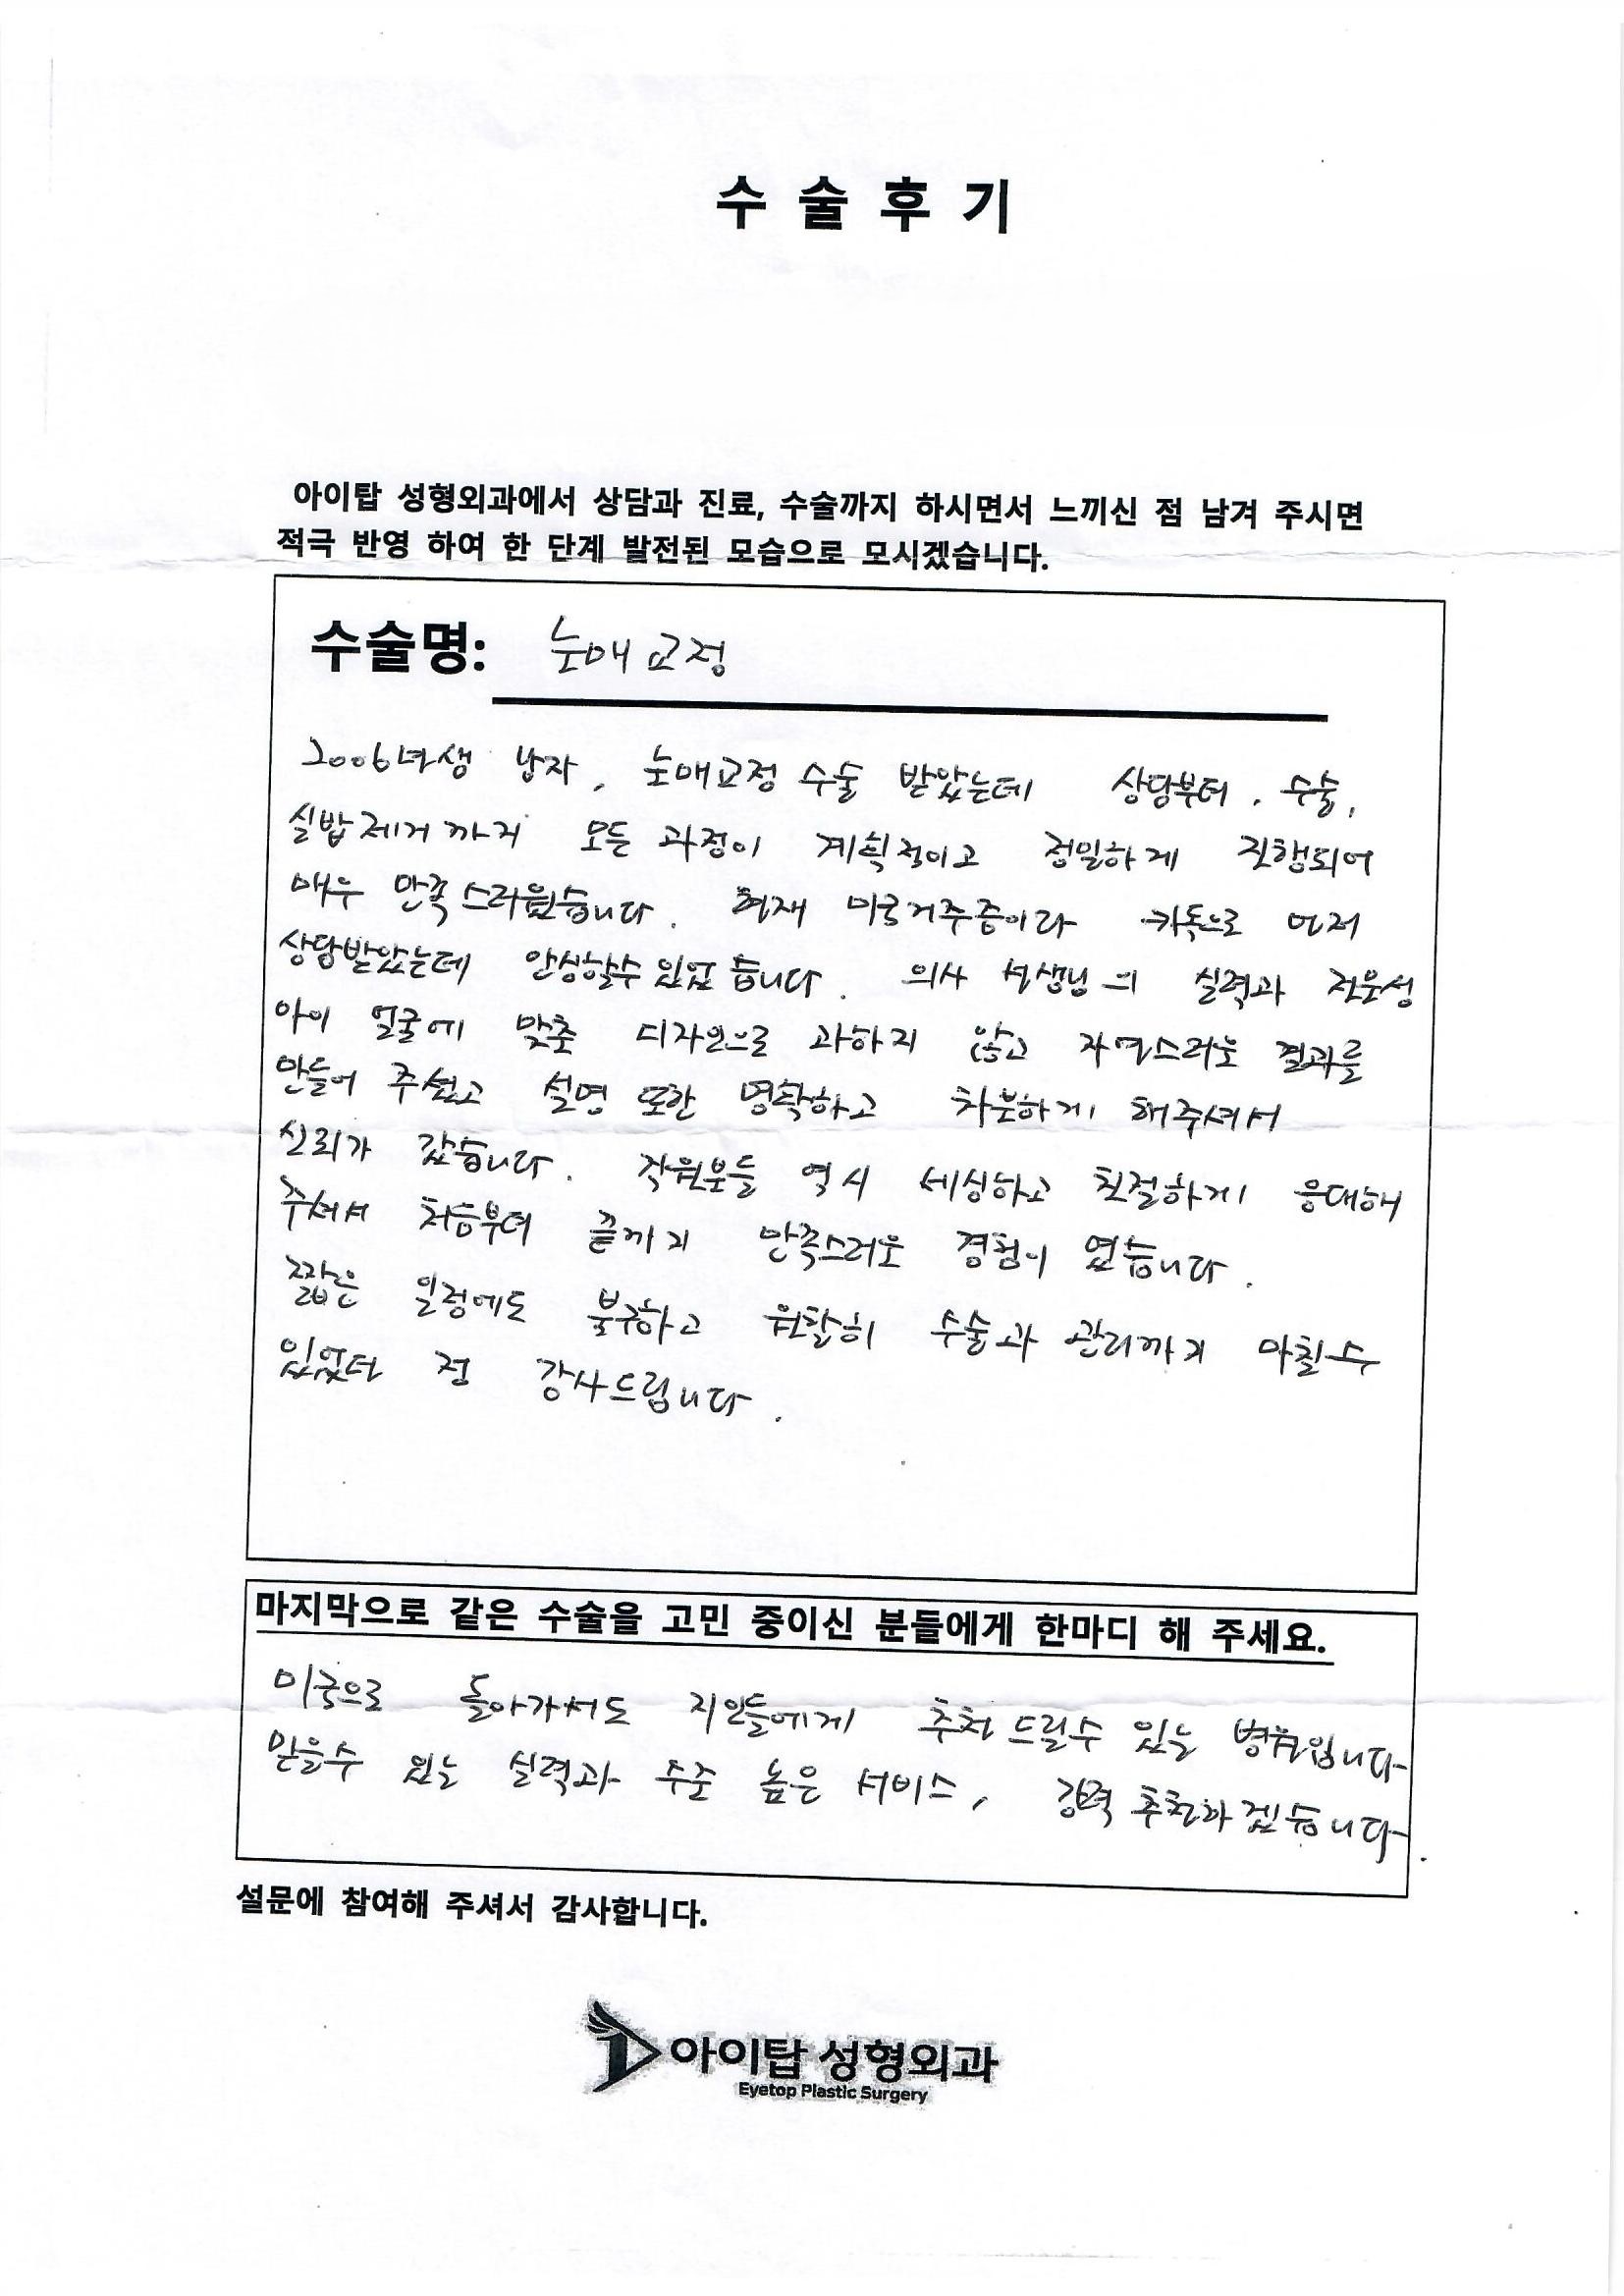 수술후기
아이탑 성형외과에서 상담과 진료, 수술까지 하시면서 느끼신 점 남겨 주시면
적극 반영 하여 한 단계 발전된 모습으로 모시겠습니다.
수술명: 눈매교정
2006년생 남자, 눈매교정 수술 받았는데 상담부터, 수술,
실밥제거까지 모든 과정이 계획적이고 정밀하게 진행되어
매우 만족스러웠습니다. 현재 미국거주중이라 카톡으로 먼저
상담받았는데 안심할수 있었습니다. 의사 선생님의 실력과 전문성
아이 얼굴에 맞춤 디자인으로 과하지 않고 자연스러운 결과를
만들어 주셨고 설명 또한 명확하고 차분하게 해주셔서
신뢰가 갔습니다. 직원분들 역시 세심하고 친절하게 응대해
주셔서 처음부터 끝까지 만족스러운 경험이 였습니다.
짧은 일정에도 불구하고 원활히 수술과 관리까지 마칠수
있었던 점 감사드립니다.
마지막으로 같은 수술을 고민 중이신 분들에게 한마디 해 주세요.
미국으로 돌아가서도 지인들에게 추천드릴수 있는 병원입니다
믿을수 있는 실력과 수준 높은 서비스, 강력 추천하겠습니다.
설문에 참여해 주셔서 감사합니다.
아이탑 성형외과
Eyetop Plastic Surgery